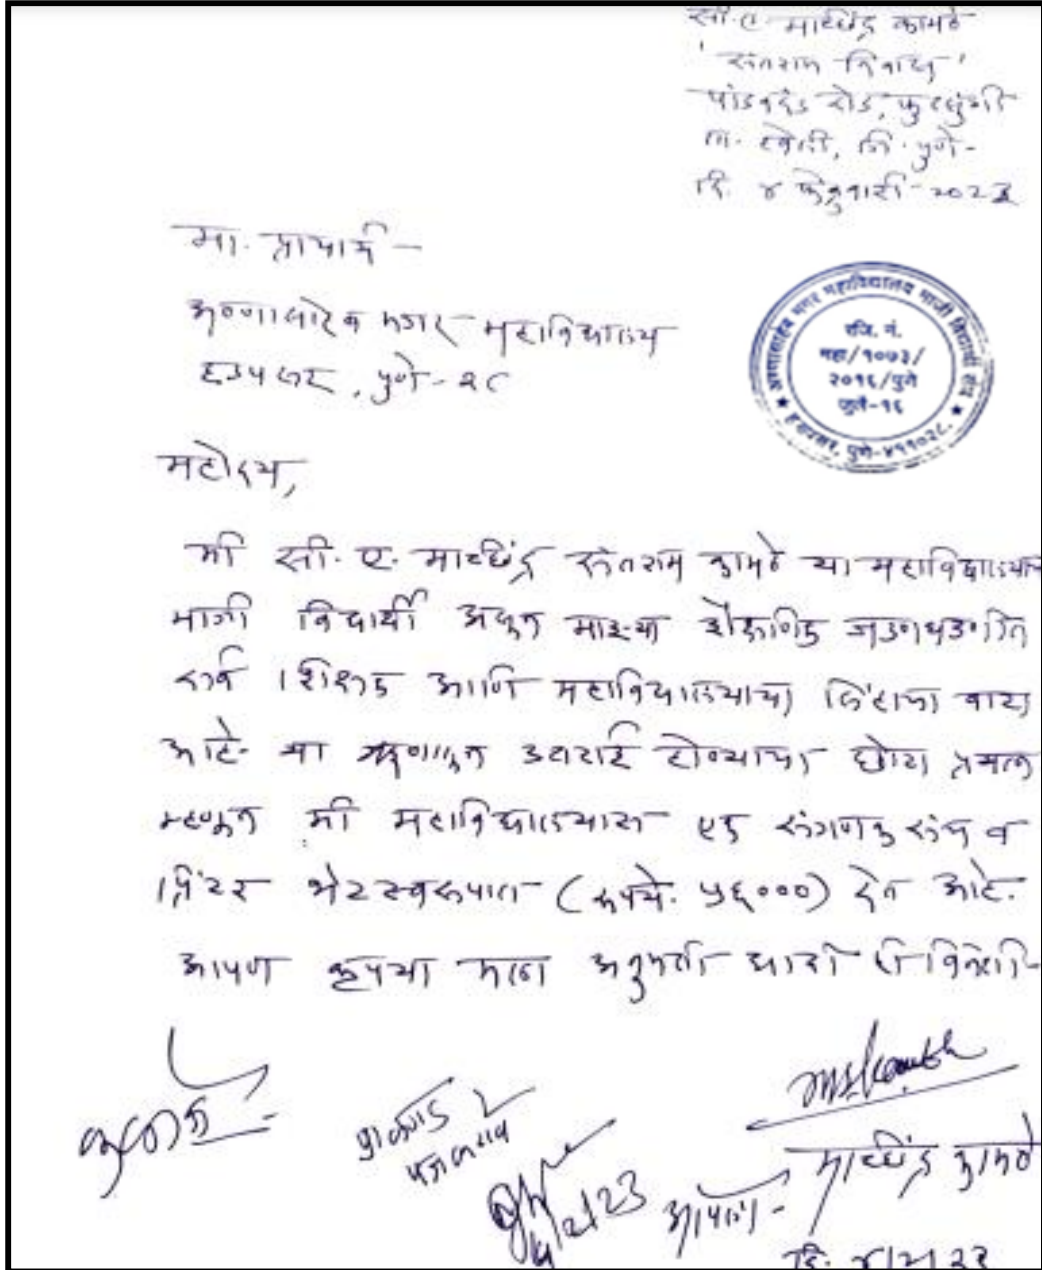 सी.ए. माच्छिंद्र कामठे
'संतराम निवास'
पांडवदंड रोड, फुरसुंगी
ता. हवेली, जि. पुणे-
दि. ४ फेब्रुवारी-२०२३
मा. प्राचार्य -
अण्णासाहेब मगर महाविद्यालय
हडपसर, पुणे-२८
अण्णासाहेब मगर महाविद्यालय माजी विद्यार्थी संघ
रजि. नं.
महा/१०७३/
२०१६/पुणे
जुलै-१६
★ हडपसर, पुणे-४११०२८. ★
महोदय,
मी सी. ए. माच्छिंद्र संतराम कामठे या महाविद्यालयाचा
माजी विद्यार्थी असून माझ्या शैक्षणिक जडणघडणीत
सर्व शिक्षक आणि महाविद्यालयाचा सिंहाचा वाटा
आहे. या ऋणातून उतराई होण्याचा छोटा प्रयत्न
म्हणून मी महाविद्यालयास एक संगणक संच व
प्रिंटर भेटस्वरूपात (रूपये. ५६०००) देत आहे.
आपण कृपया मला अनुमती द्यावी ही विनंती-
आपला -
माच्छिंद्र कामठे
दि. ४/२/२३
4/2/23